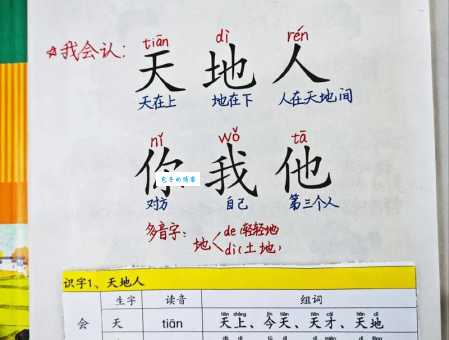 ☆我会认:
tiān dì rén
天地人
天在上 地在下 人在天地间
nǐ wǒ tā
你我他
对方 自己 第三个人
多音字: 地 de(轻轻地)
dì(土地)
识字1、天地人
生字 读音 组词
会 天 tiān 天上、今天、天才、天地